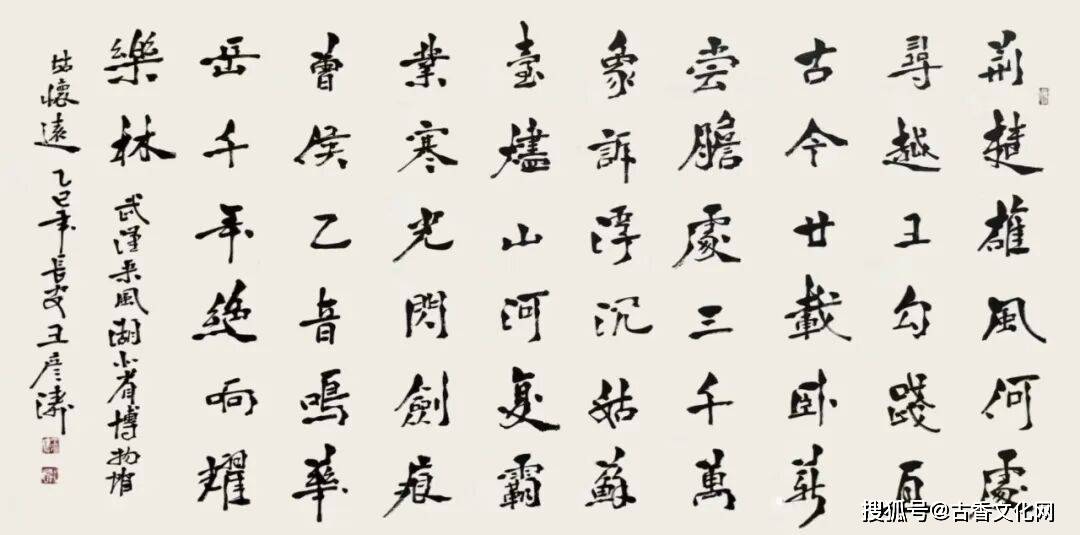 荆楚雄風何處
尋越王勾踐亘
古今廿載卧薪
嘗膽處三千萬
象訴浮沉姑蘇
臺燼山河复霸
業寒光閃劍痕
曾侯乙音鳴華
岳千年絶响耀
樂林 武漢采風湖北省博物馆
懷遠 乙巳年 長安王彦濤
搜狐号@古香文化网